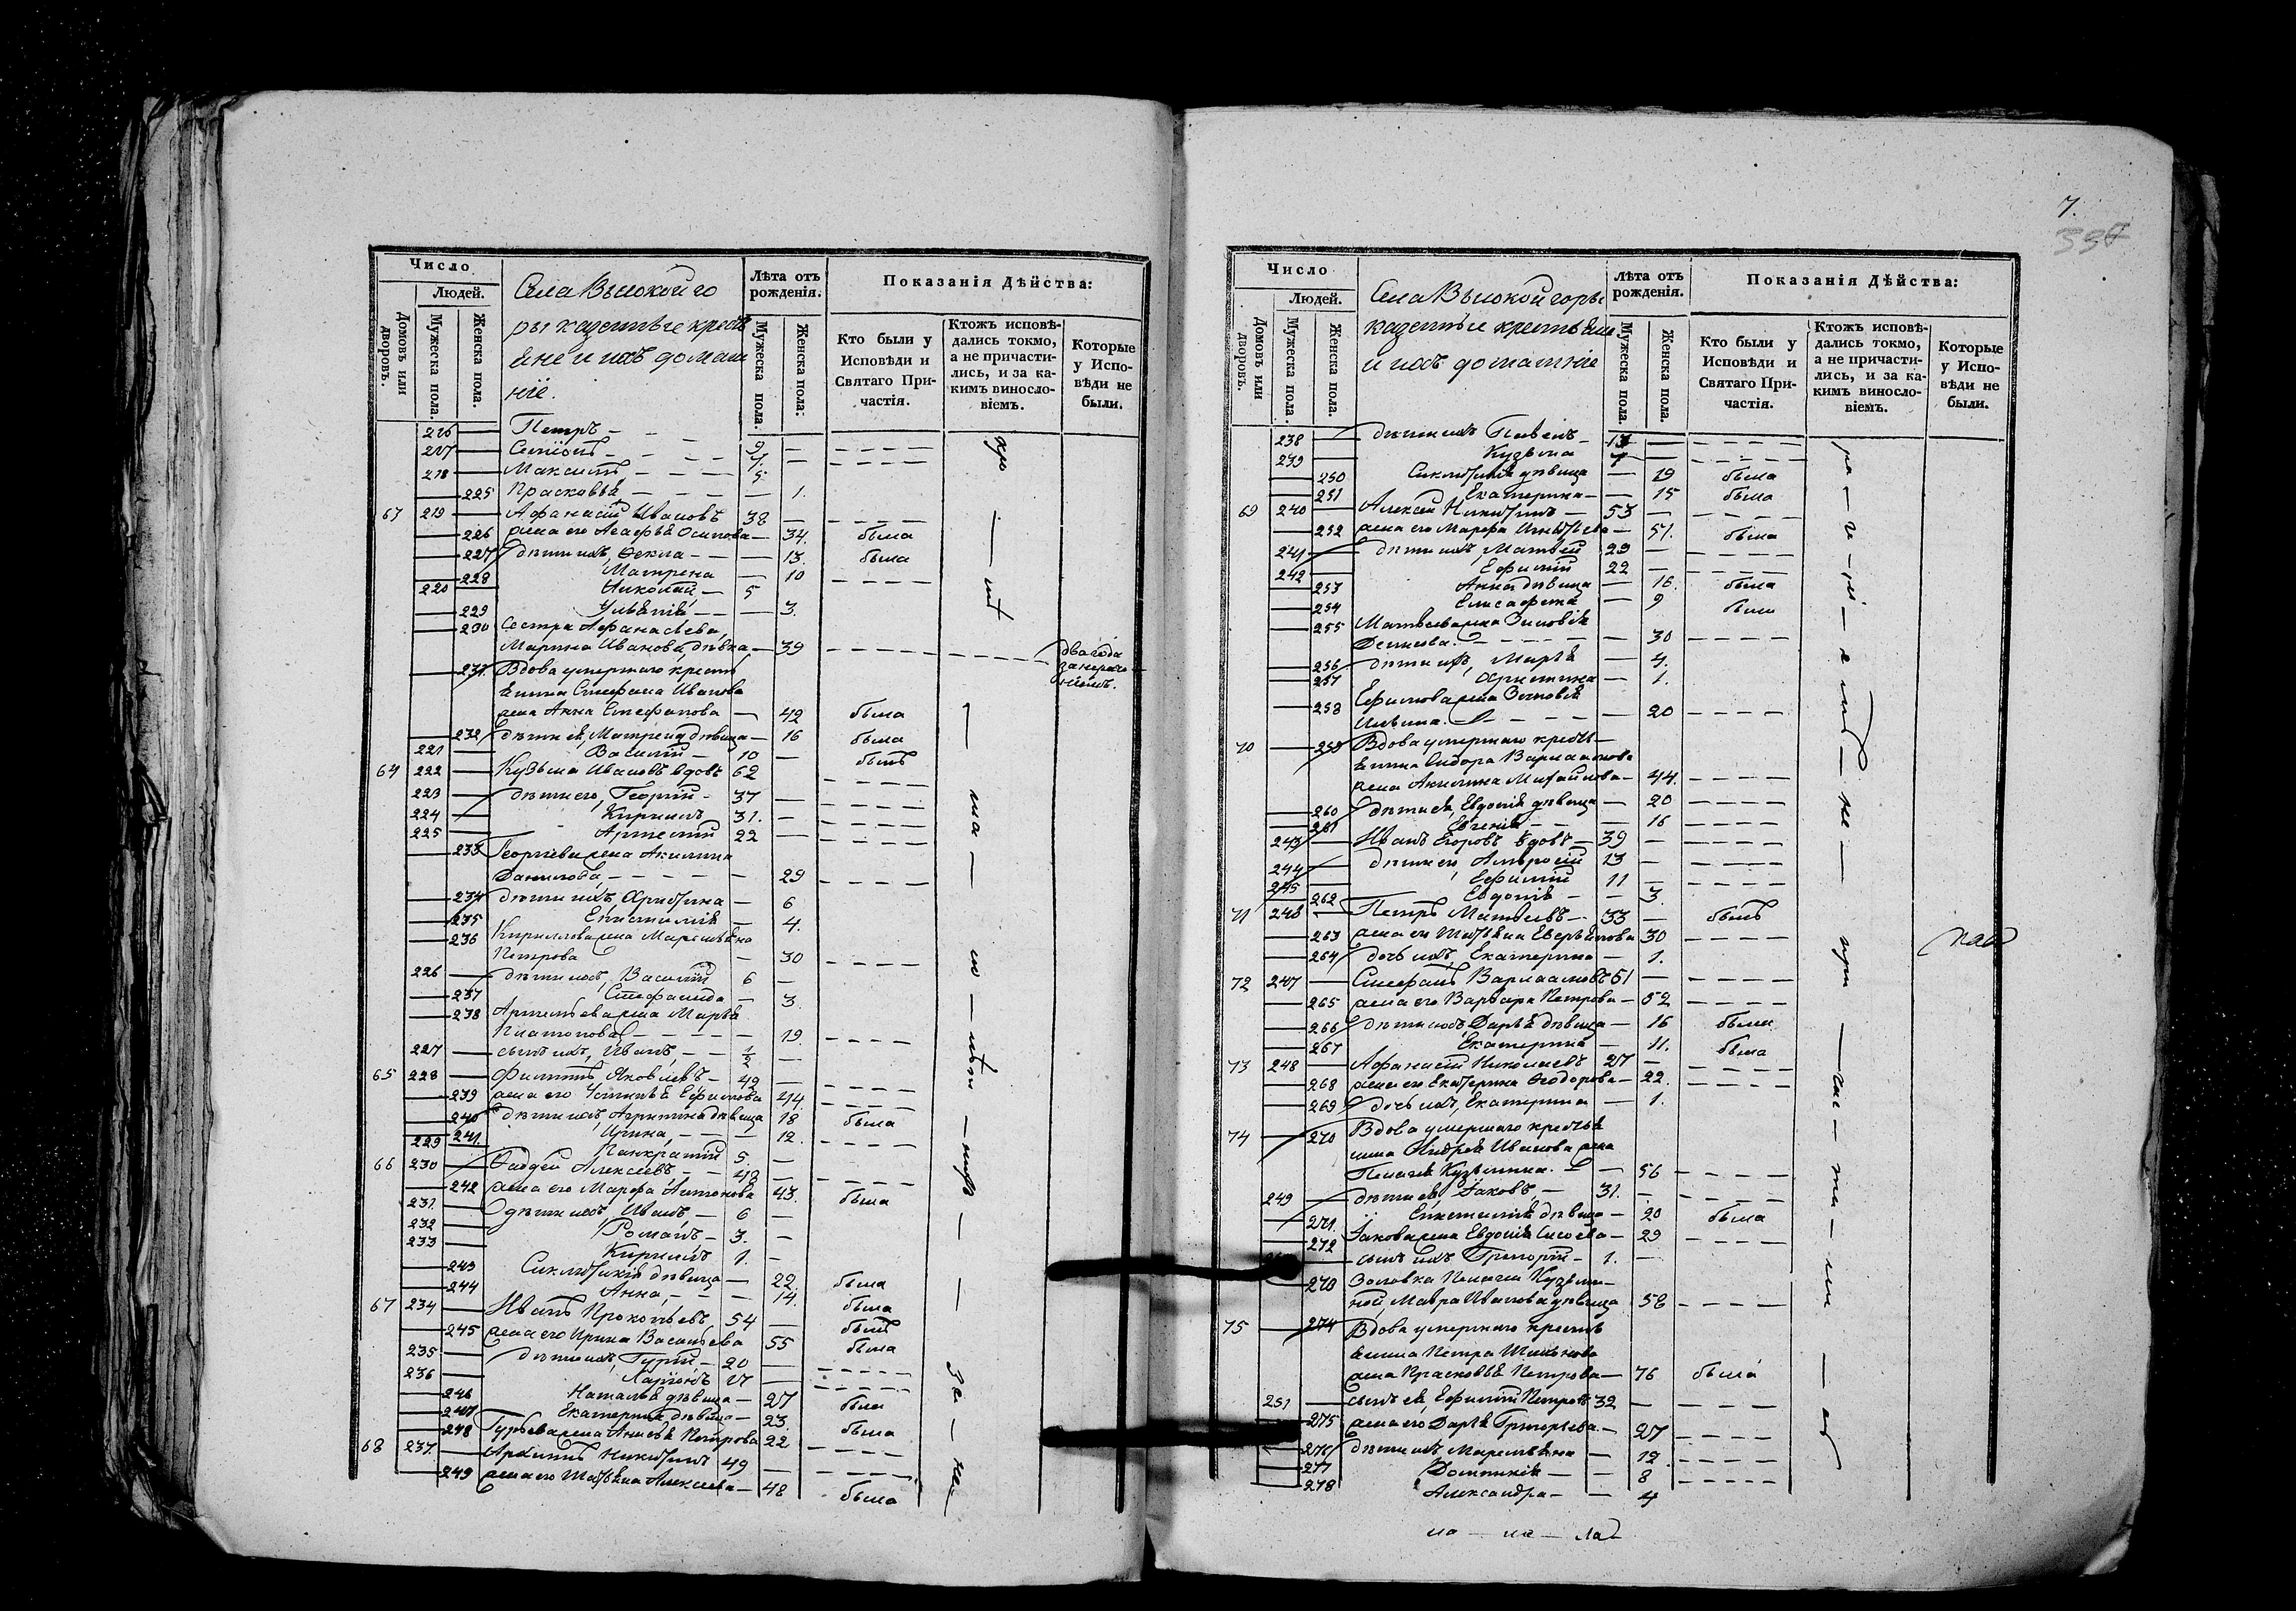 Число
Людей.
Домовъ или дворовъ.
Мужеска пола.
Женска пола.
Села Высокой го
ры казенные кресть
яне и ихъ домаш
ніе.
Лѣта отъ рожденія.
Мужеска пола.
Женска пола:
Показанія Дѣйства:
Кто были у Исповѣди и Святаго Причастія.
Ктожъ исповѣдались токмо, а не причастились, и за какимъ винословіемъ.
Которые у Исповѣди не были.
216 Петръ 9
217 Семіонъ 7
218 Максимъ 5
225 Прасковья 1.
219 Афанасій Ивановъ 38
226 жена его Агафья Осипова 34. была
227 дѣти ихъ, Фекла 13. была
228 Матрена 10
220 Николай 5
229 Ульянія 3.
230 Сестра Афанасьева,
Марина Иванова дѣвка 39 два года
231. Вдова умершаго кресть
янина Стефана Иванова
жена Анна Стефанова 42 была
232 дѣти ея, Матрена дѣвица 16 была
221 Василій 10 былъ
64 222 Кузьма Ивановъ вдовъ 62
223 дѣти его, Георгій 37
224 Кириллъ 31.
225 Артемій 22
233 Георгіева жена Акилина
Данилова 29
234 дѣти ихъ, Христина 6
235 Епистимія 4.
236 Кириллова жена Маремьяна
Петрова 30
226 дѣти ихъ, Василій 6
237 Стефанида 3.
238 Артемьева жена Марья
Платонова 19.
227 сынъ ихъ, Иванъ 1/2
65 228 Филиппъ Яковлевъ 42
239 жена его Устинья Ефимова 44.
240 дѣти ихъ, Агрипина дѣвица 18 была
241. Ирина 12.
229 Панкратій 5
66 230 Фаддей Алексѣевъ 48
242 жена его Марфа Антонова 43. была
231. дѣти ихъ, Иванъ 6
232 Романъ 3.
233 Кириллъ 1.
243 Сиклитикія дѣвица 22. была
244 Анна 14. была
67 234 Иванъ Прокопьевъ 54 былъ
245 жена его Ирина Васильева 55 была
235 дѣти ихъ, Гурій 20
236 Ларіонъ 17
246 Наталья дѣвица 27 была
247 Екатерина дѣвица 23. была
248 Гурьева жена Анисья Петрова 22
68 237. Архиппъ Никитинъ 49
249 жена его Татьяна Алексѣева 48 была
7.
Число
Людей.
Домовъ или дворовъ.
Мужеска пола
Женска пола.
Села Высокой горы
казенные крестьяне
и ихъ домашніе
Лѣта отъ рожденія.
Мужеска пола
Женска пола.
Показанія Дѣйства:
Кто были у Исповѣди и Святаго Причастія.
Ктожъ исповѣдались токмо, а не причастились, и за какимъ винословіемъ.
Которые у Исповѣди не были.
238 дѣти ихъ 13
239 Кузьма 7
250 Сиклитикія дѣвица 19 была
251 Екатерина 15 была
69 240 Алексѣй Никитинъ 53
252 жена его Марфа Игнатьева 51. была
241 дѣти ихъ, Матвѣй 29
242 Ефимій 22
253 Анна дѣвица 16. была
254 Елисафета 9 была
255 Матвѣева жена Зиновія
Денисова 30
256 дѣти ихъ, Марья 4.
257 Христина 1.
258 Ефимова жена Зиновія
Ильина 20
70 259 Вдова умершаго кресть
янина Сидора Варламова
жена Акилина Михайлова 44.
260 дѣти ея, Евдокія дѣвица 20
261 Евгенія 16
243 Иванъ Егоровъ вдовъ 39
244 дѣти его, Амвросій 13
245 Ефимій 11
262 Евдокія 3.
71 246 Петръ Матвѣевъ 33 былъ
263 жена его Татьяна 30
264 дочь ихъ, Екатерина 1.
72 247 Стефанъ Варламовъ 51
265 жена его Варвара Петрова 52
266 дѣти ихъ, Дарья дѣвица 16 была
267 Екатерина 11. была
73 248 Афанасій Николаевъ 27
268 жена его Екатерина Феодорова 22.
269 дочь ихъ, Екатерина 1.
74 270 Вдова умершаго крестья
нина Андрея Иванова жена
Пелагея Кузьмина 56
249 дѣти ея, Іаковъ 31.
271. Епистимія дѣвица 20 была
272 Іаковля жена Евдокія Сысоева 29
сынъ ихъ Григорій 1.
273 Золовка Пелагеи Кузьми
ной, Мавра Иванова дѣвица 58
75 274 Вдова умершаго кресть
янина Петра
жена Прасковья Петрова 76 была
251 сынъ ея, Ефимій Петровъ 32
275 жена его Дарья Григорьева 27
276 дѣти ихъ Маремьяна 12
277 Домникія 8
278 Александра 4